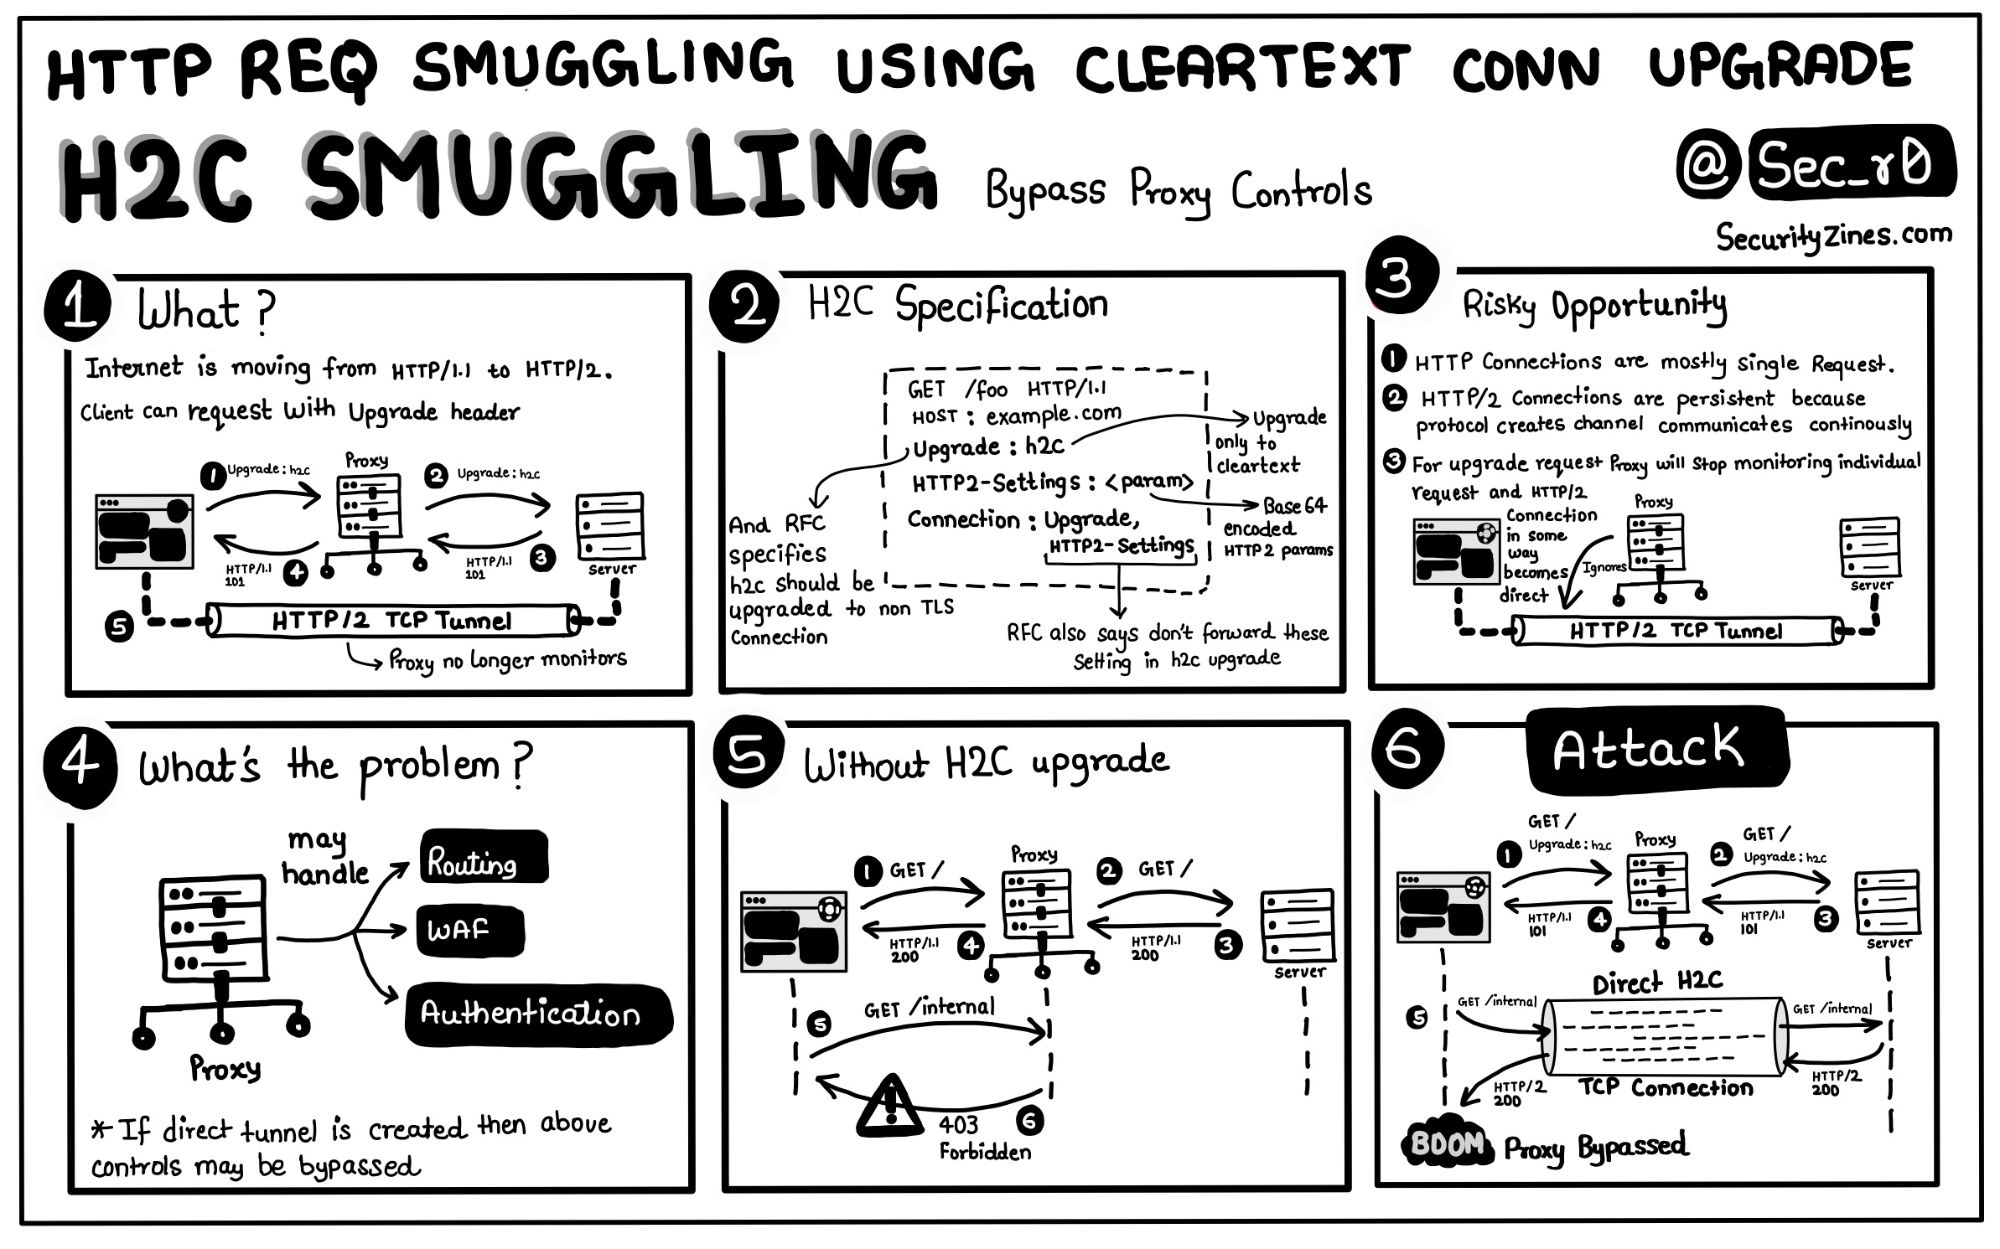 HTTP REQ SMUGGLING USING CLEARTEXT CONN UPGRADE
H2C SMUGGLING
Bypass Proxy Controls
@Sec_r0
SecurityZines.com
1
What?
Internet is moving from HTTP/1.1 to HTTP/2.
Client can request with Upgrade header
1
Upgrade: h2c
Proxy
2
Upgrade: h2c
HTTP/1.1
101
4
HTTP/1.1
101
3
Server
5
HTTP/2 TCP Tunnel
Proxy no longer monitors
2
H2C Specification
GET /foo HTTP/1.1
HOST: example.com
Upgrade: h2c
HTTP2-Settings: <param>
Connection: Upgrade,
HTTP2-Settings
Upgrade
only to
cleartext
Base64
encoded
HTTP2 params
And RFC
specifies
h2c should be
upgraded to non TLS
Connection
RFC also says don't forward these
Setting in h2c upgrade
3
Risky Opportunity
1 HTTP Connections are mostly single Request.
2 HTTP/2 Connections are persistent because
protocol creates channel communicates continously
3 For upgrade request Proxy will stop monitoring individual
request and HTTP/2
Connection
in some
way
becomes
direct
Proxy
Ignores
Server
HTTP/2 TCP Tunnel
4
What's the problem?
may
handle
Routing
WAF
Authentication
Proxy
* If direct tunnel is created then above
controls may be bypassed
5
Without H2C upgrade
1 GET /
Proxy
2 GET /
HTTP/1.1
200
4
HTTP/1.1
200
3
Server
5
GET /internal
!
403
Forbidden
6
6
Attack
1
GET /
Upgrade: h2c
Proxy
2
GET /
Upgrade: h2c
HTTP/1.1
101
4
HTTP/1.1
101
3
Server
Direct H2C
5
GET /internal
GET /internal
HTTP/2
200
TCP Connection
HTTP/2
200
BOOM
Proxy Bypassed